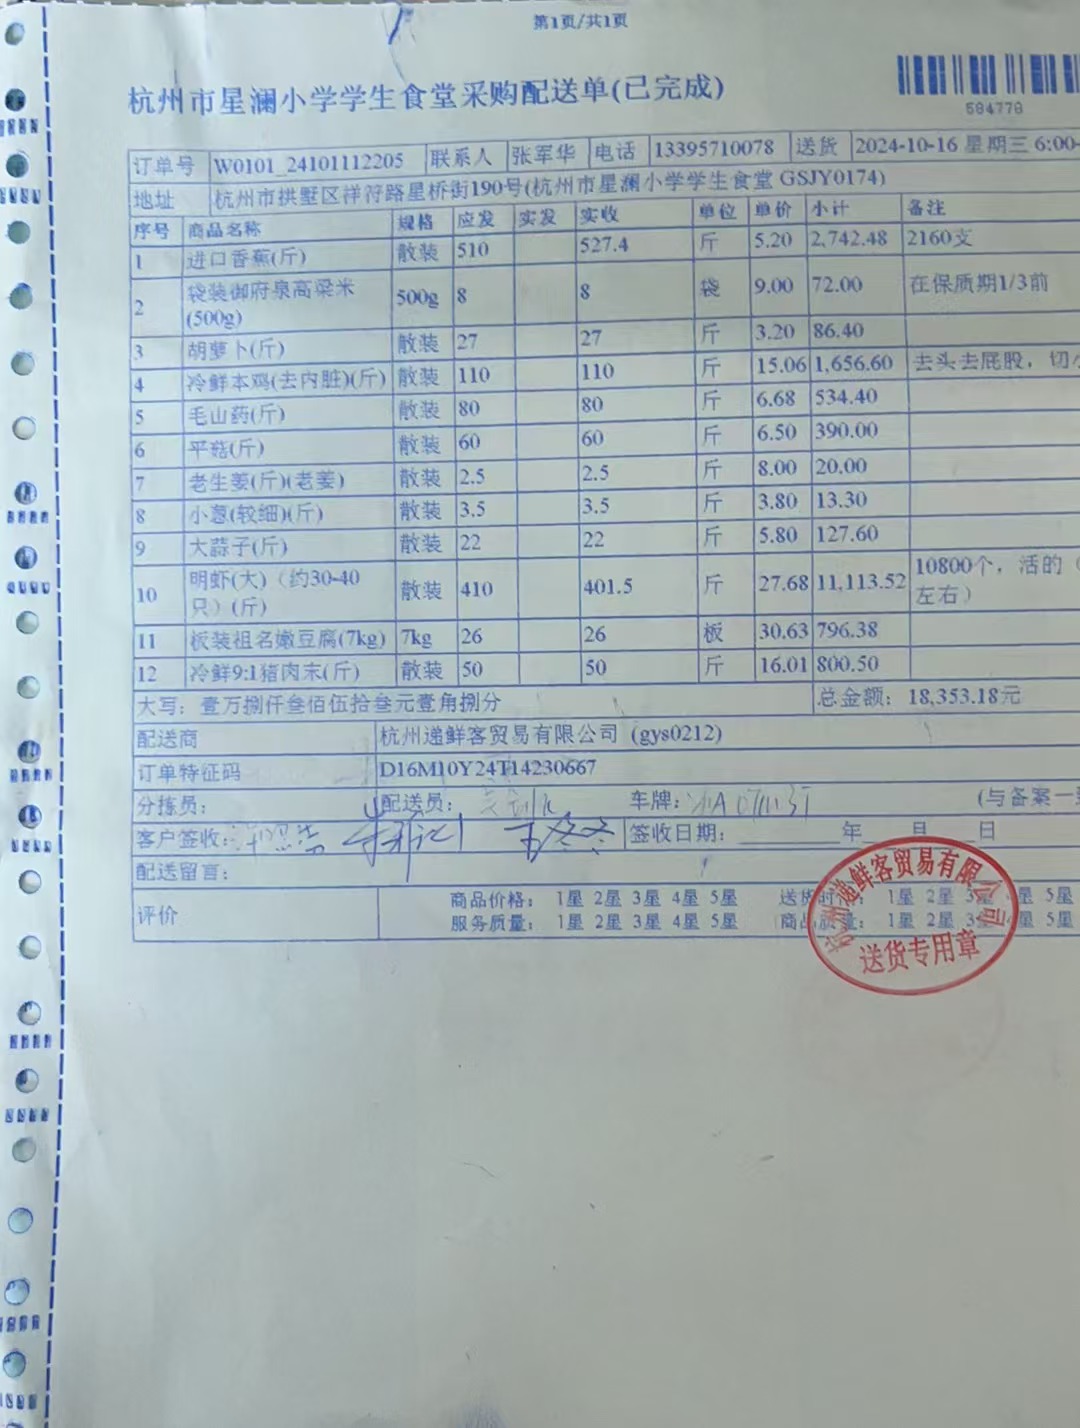 第1页/共1页
杭州市星澜小学学生食堂采购配送单(已完成)
584778
订单号 W0101_24101112205 联系人 张军华 电话 13395710078 送货 2024-10-16 星期三 6:00-
地址 杭州市拱墅区祥符路星桥街190号(杭州市星澜小学学生食堂 GSJY0174)
序号 商品名称 规格 应发 实发 实收 单位 单价 小计 备注
1 进口香蕉(斤) 散装 510 527.4 斤 5.20 2,742.48 2160支
2 袋装御府泉高粱米(500g) 500g 8 8 袋 9.00 72.00 在保质期1/3前
3 胡萝卜(斤) 散装 27 27 斤 3.20 86.40
4 冷鲜本鸡(去内脏)(斤) 散装 110 110 斤 15.06 1,656.60 去头去屁股，切
5 毛山药(斤) 散装 80 80 斤 6.68 534.40
6 平菇(斤) 散装 60 60 斤 6.50 390.00
7 老生姜(斤)(老姜) 散装 2.5 2.5 斤 8.00 20.00
8 小葱(较细)(斤) 散装 3.5 3.5 斤 3.80 13.30
9 大蒜子(斤) 散装 22 22 斤 5.80 127.60
10 明虾(大)（约30-40只）(斤) 散装 410 401.5 斤 27.68 11,113.52 10800个，活的（左右）
11 板装祖名嫩豆腐(7kg) 7kg 26 26 板 30.63 796.38
12 冷鲜9:1猪肉末(斤) 散装 50 50 斤 16.01 800.50
大写：壹万捌仟叁佰伍拾叁元壹角捌分 总金额：18,353.18元
配送商 杭州递鲜客贸易有限公司 (gys0212)
订单特征码 D16M10Y24T14230667
分拣员： 配送员： 车牌： (与备案一
客户签收： 签收日期： 年 月 日
配送留言：
评价 商品价格： 1星 2星 3星 4星 5星 送货时 1星 2星 3星 星 5星
服务质量： 1星 2星 3星 4星 5星 商品质量： 1星 2星 3星 4星 5星
杭州递鲜客贸易有限公司
送货专用章